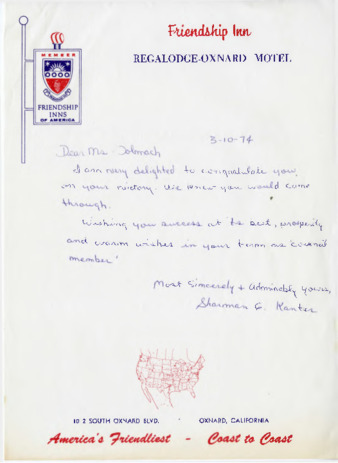 Friendship Inn
REGALODGE-OXNARD MOTEL
MEMBER
FRIENDSHIP
INNS
OF AMERICA
3-10-74
Dear Ms.
I am very delighted to congratulate you
on your victory. We knew you would come
through.
Wishing you success at its best, prosperity
and warm wishes in your term as council
member
Most Sincerely & Admirably yours,
Sharman C. Kanter
2 SOUTH OXNARD BLVD. OXNARD, CALIFORNIA
America's Friendliest - Coast to Coast